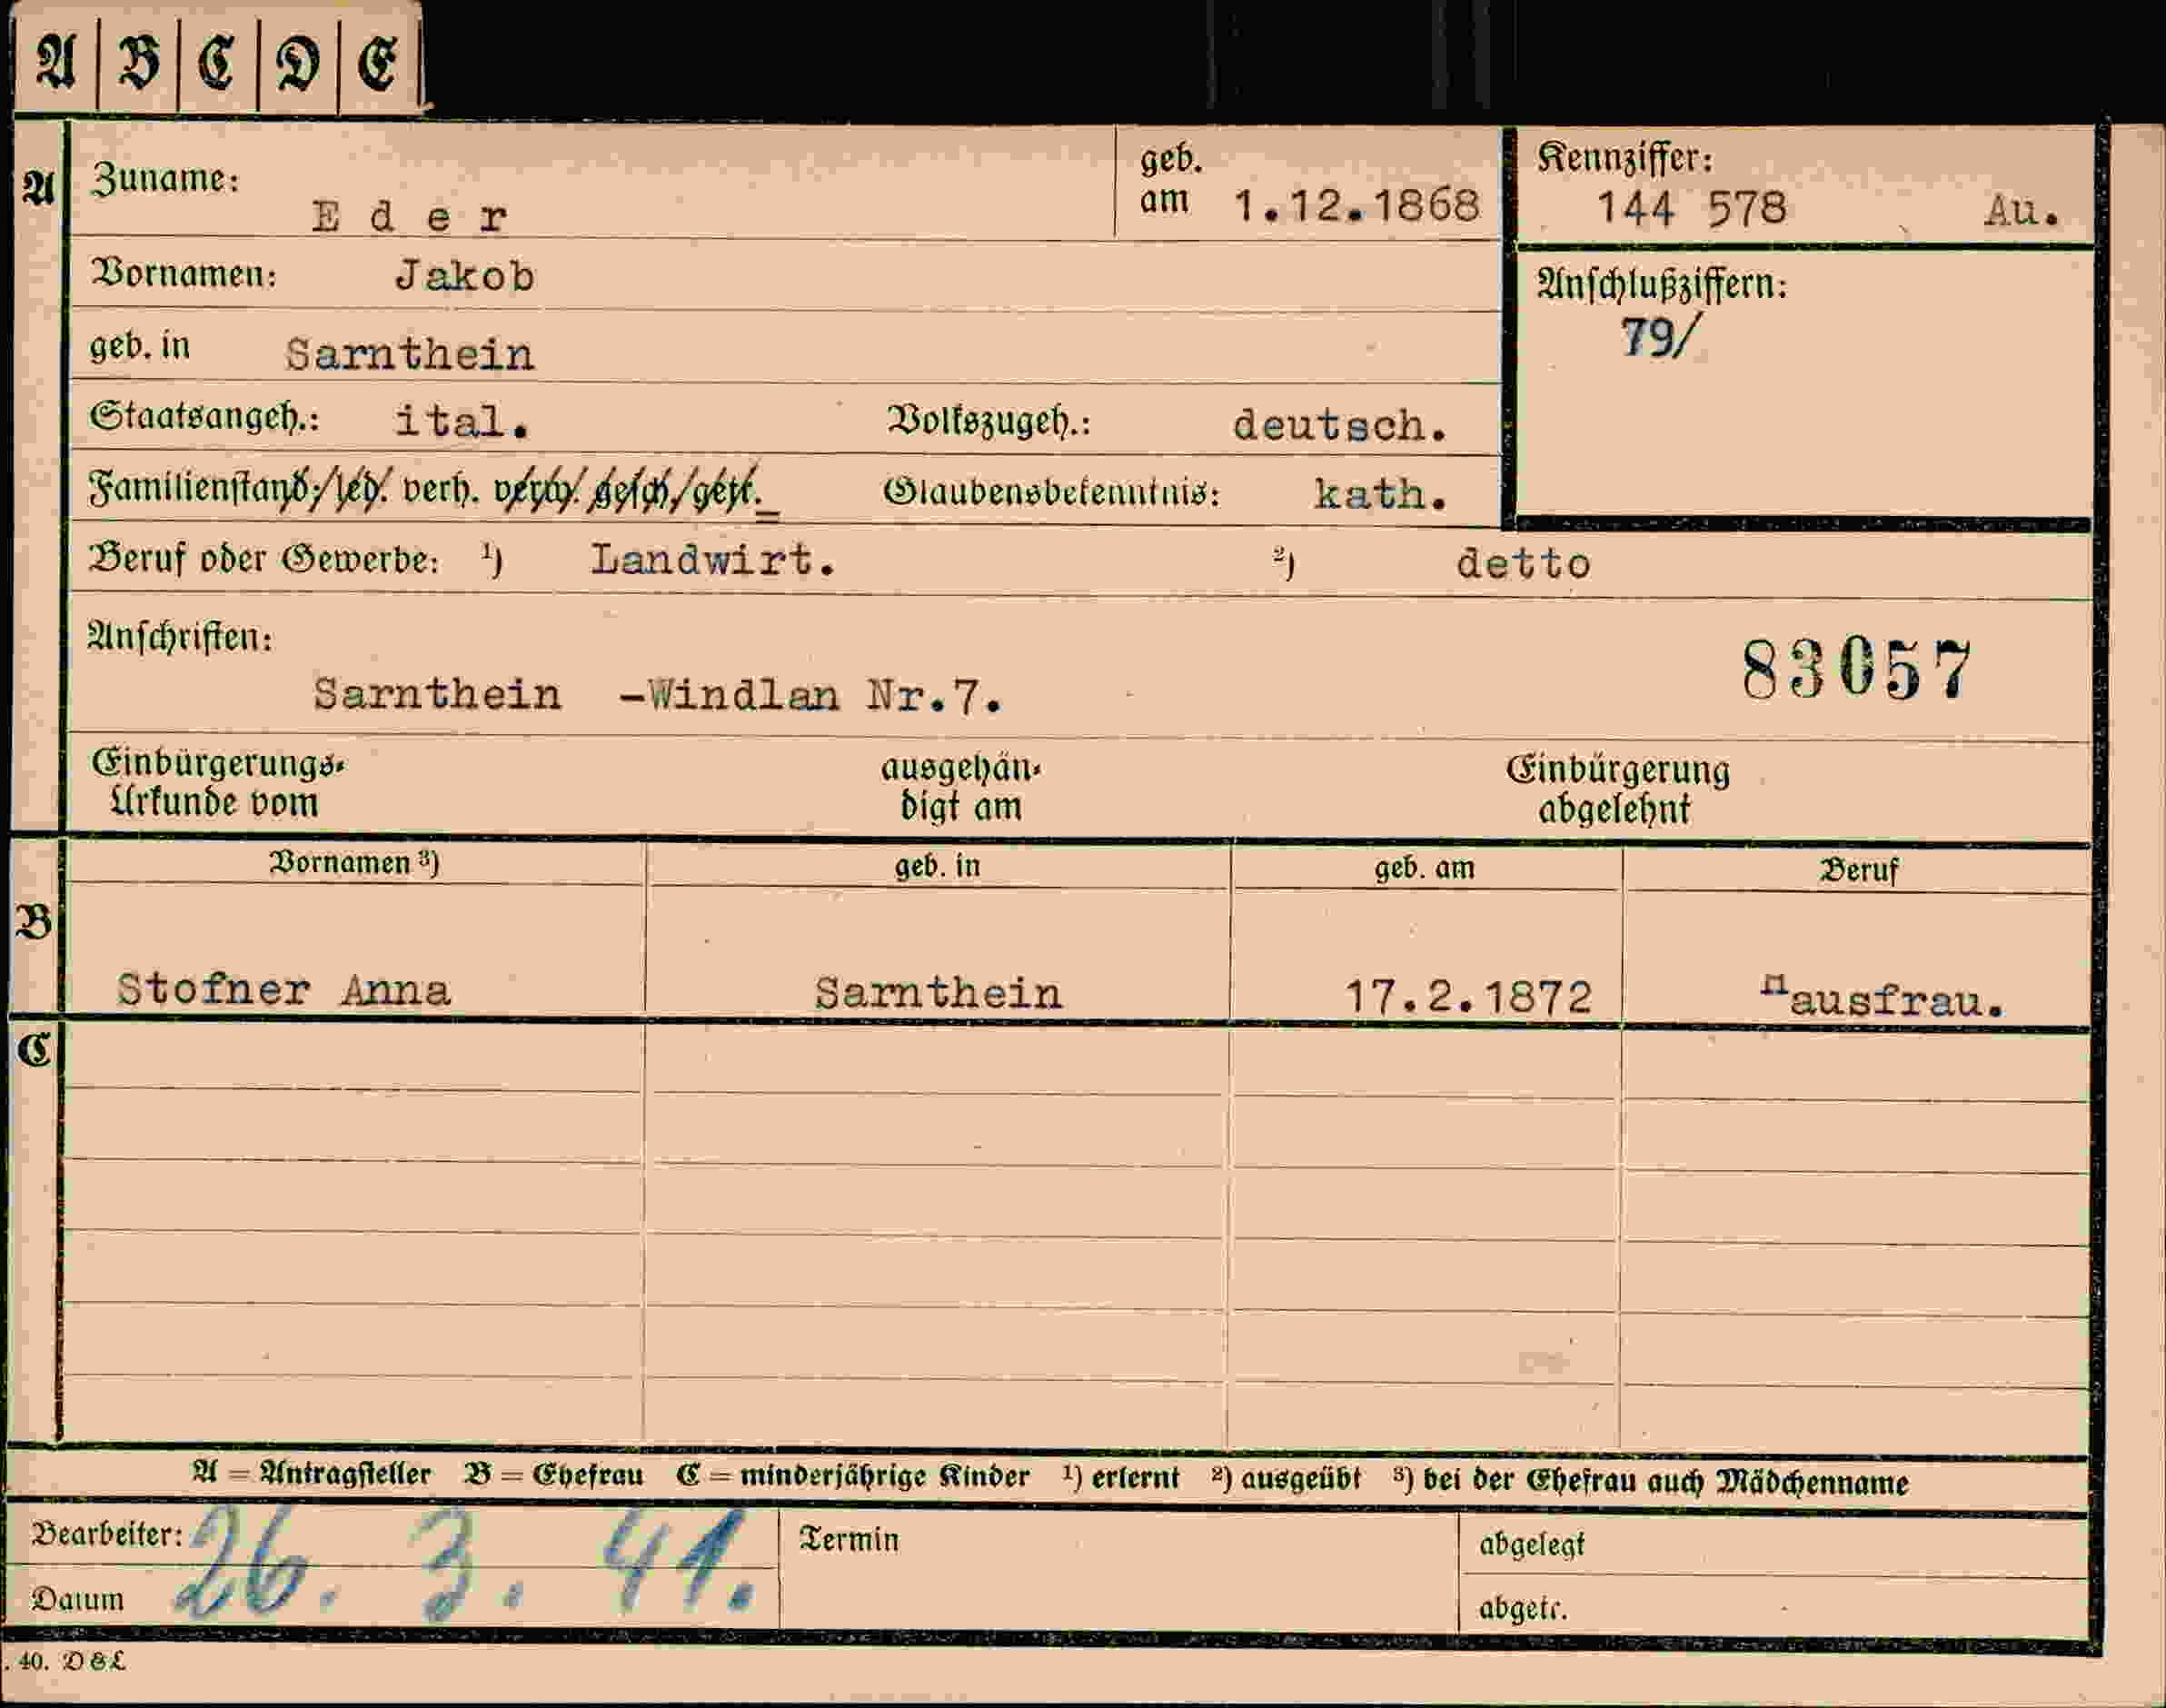 A B C D E
A
Zuname: E d e r
geb. am 1.12.1868
Kennziffer: 144 578 Au.
Vornamen: Jakob
Anschlußziffern: 79/
geb. in Sarnthein
Staatsangeh.: ital. Volkszugeh.: deutsch.
Familienstand: led. verh. verw. gesch. getr. Glaubensbekenntnis: kath.
Beruf oder Gewerbe: ¹) Landwirt. ²) detto
Anschriften:
83057
Sarnthein -Windlan Nr.7.
Einbürgerungs- ausgehän- Einbürgerung
Urkunde vom digt am abgelehnt
Vornamen ³) geb. in geb. am Beruf
B
Stofner Anna Sarnthein 17.2.1872 Hausfrau.
C
A = Antragsteller B = Ehefrau C = minderjährige Kinder ¹) erlernt ²) ausgeübt ³) bei der Ehefrau auch Mädchenname
Bearbeiter: 26. 3. 41. Termin abgelegt
Datum abgetr.
. 40. D & L